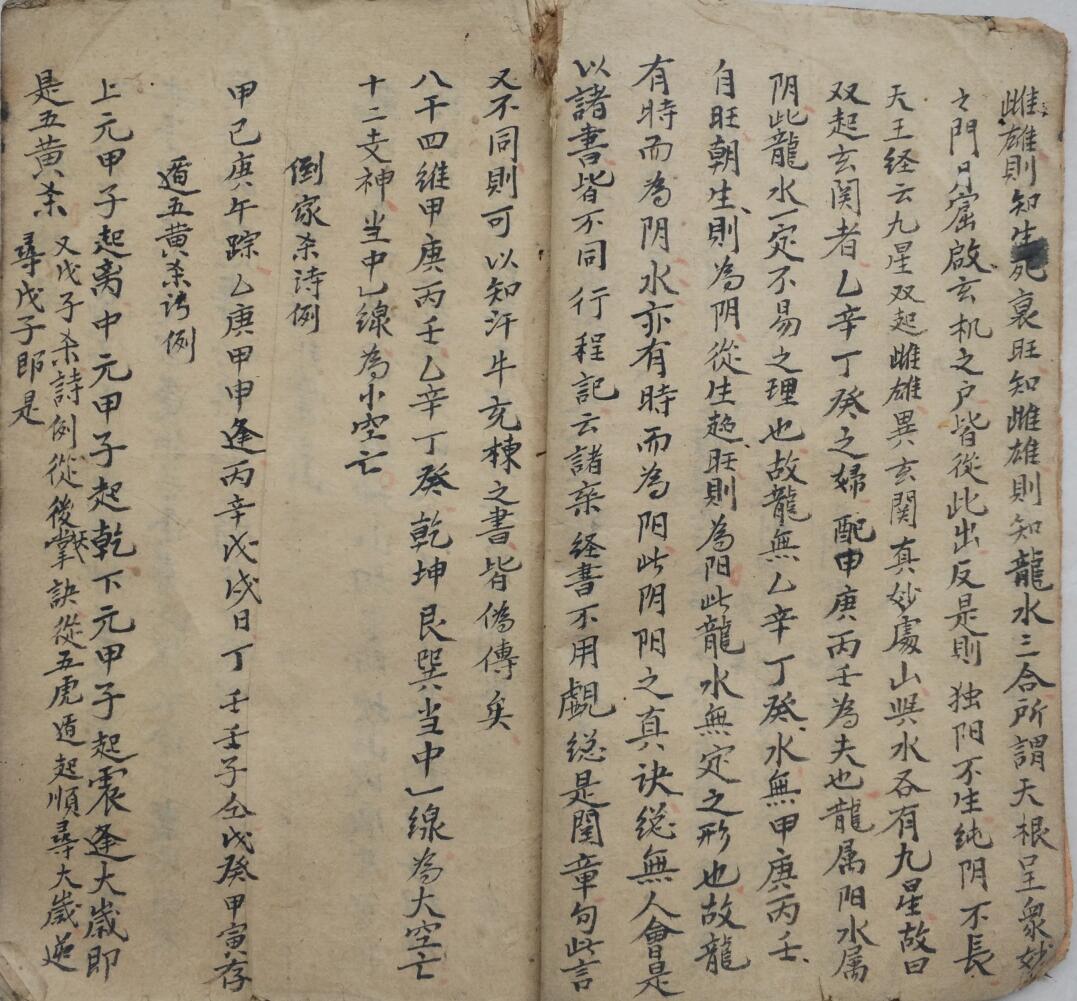 雌雄則知生死衰旺知雌雄則知龍水三合所謂天根呈衆妙
之門月窟啟玄机之户皆從此出反是則独阳不生纯阴不長
天王経云九星双起雌雄異玄関真妙處山與水各有九星故曰
双起玄関者乙辛丁癸之婦配甲庚丙壬為夫也龍属阳水属
阴此龍水一定不易之理也故龍無乙辛丁癸水無甲庚丙壬
自旺朝生則為阴從生趋旺則為阳此龍水無定之形也故龍
有時而為阴水亦有時而為阳此阴阳之真诀総無人會是
以諸書皆不同行程記云諸棄経書不用觑総是閑章句此言
又不同則可以知汗牛充棟之書皆偽傳矣
八干四維甲庚丙壬乙辛丁癸乾坤艮巽当中一線為大空亡
十二支神当中一線為小空亡
倒家杀诗例
甲己庚午踪乙庚甲申逢丙辛戊戌日丁壬壬子仝戊癸甲寅存
遁五黄杀诗例
上元甲子起离中元甲子起乾下元甲子起震逢大歲即
是五黄杀
又戊子杀詩例從後掌訣從五虎遁起順尋大歲遊
尋戊子即是